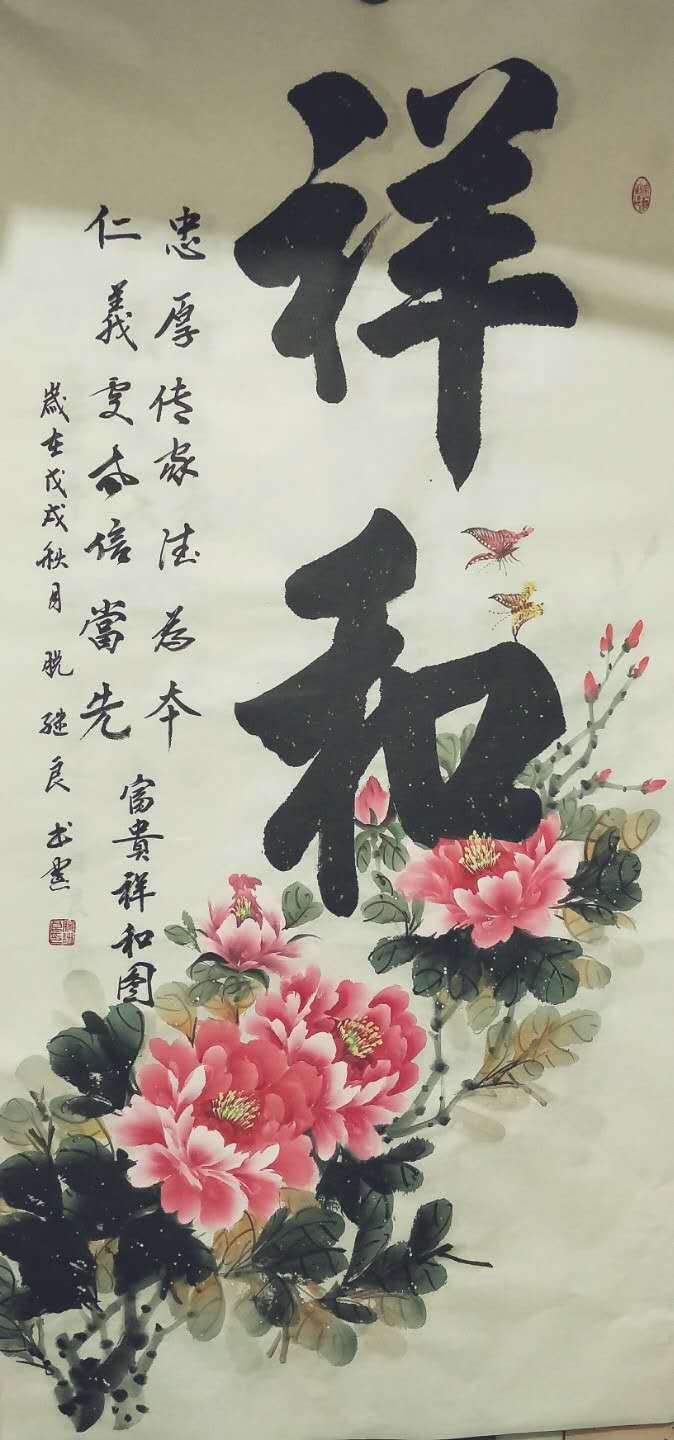 祥和
忠厚传家德为本
仁義交友信當先
富貴祥和图
歲在戊戌秋月继良书